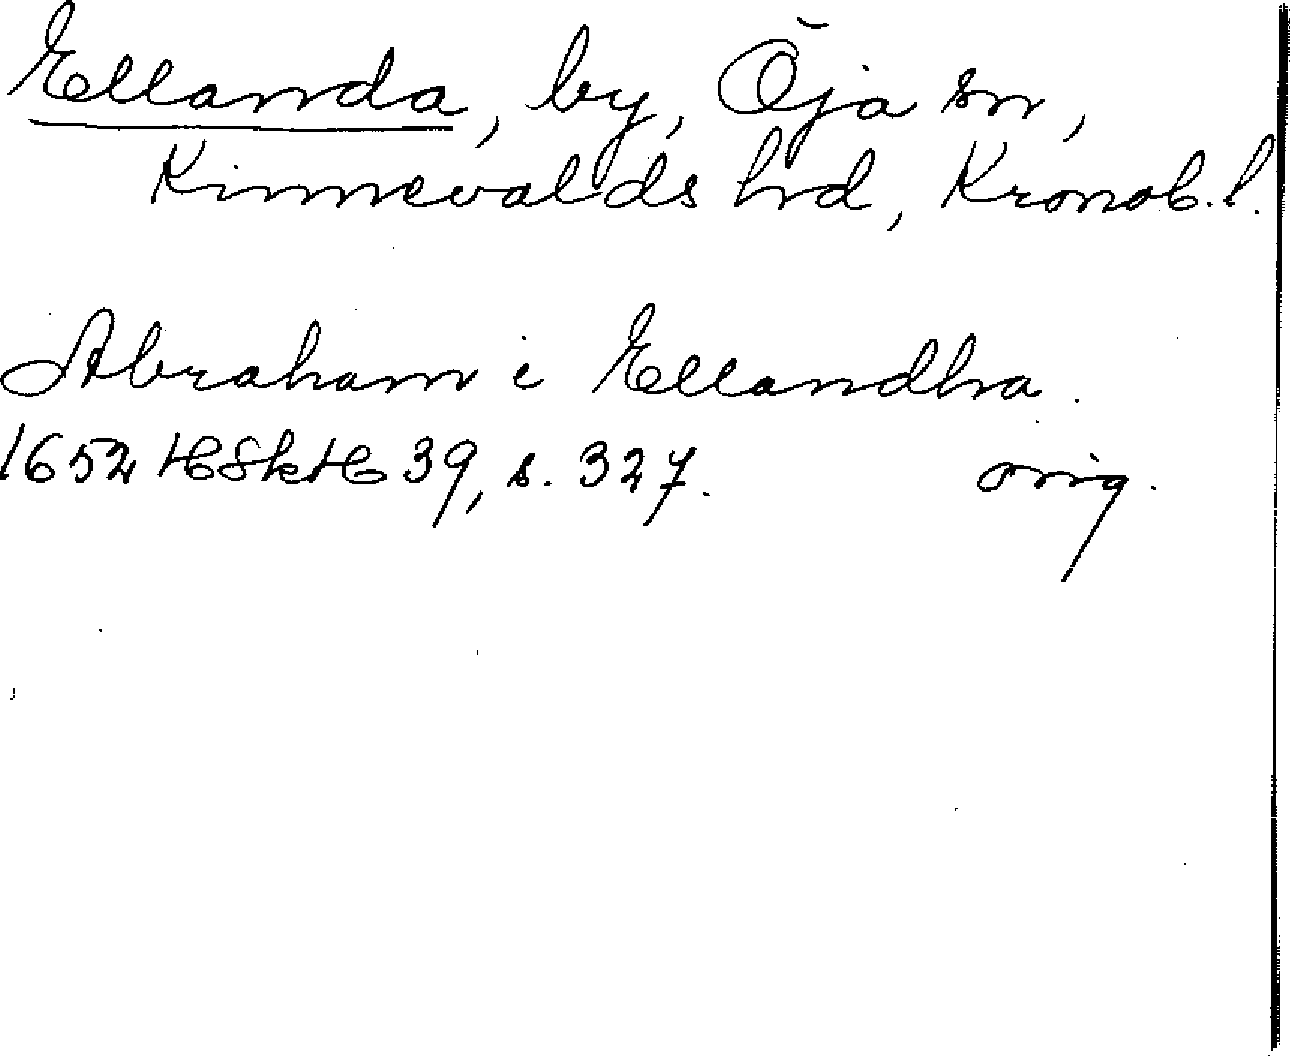 Ellanda, by, Öja sn,
Kinnevalds hd, Kronob. l.
Abraham i Ellandha.
1652 HSkH 39, s. 327. orig.